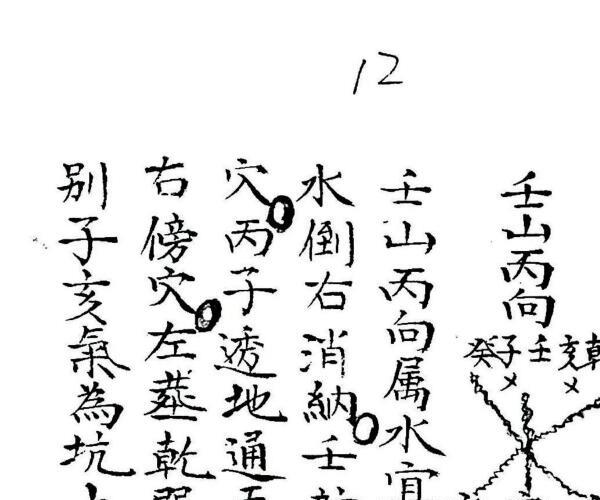 12
壬山丙向
乾亥壬子癸
壬山丙向属水宜
水倒右消納壬
穴丙子透地通
右傍穴左蓝乾
別子亥氣為坑